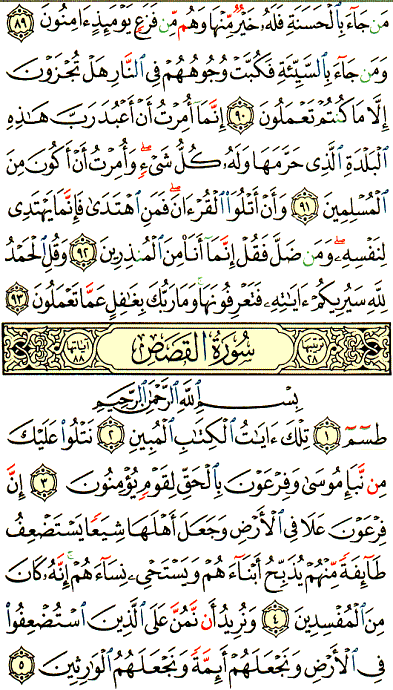 مَن جَآءَ بِٱلْحَسَنَةِ فَلَهُۥ خَيْرٌ مِّنْهَا وَهُم مِّن فَزَعٍ يَوْمَئِذٍ ءَامِنُونَ ٨٩
وَمَن جَآءَ بِٱلسَّيِّئَةِ فَكُبَّتْ وُجُوهُهُمْ فِى ٱلنَّارِ هَلْ تُجْزَوْنَ
إِلَّا مَا كُنتُمْ تَعْمَلُونَ ٩٠ إِنَّمَآ أُمِرْتُ أَنْ أَعْبُدَ رَبَّ هَـٰذِهِ
ٱلْبَلْدَةِ ٱلَّذِى حَرَّمَهَا وَلَهُۥ كُلُّ شَىْءٍ ۖ وَأُمِرْتُ أَنْ أَكُونَ مِنَ
ٱلْمُسْلِمِينَ ٩١ وَأَنْ أَتْلُوَا۟ ٱلْقُرْءَانَ ۖ فَمَنِ ٱهْتَدَىٰ فَإِنَّمَا يَهْتَدِى
لِنَفْسِهِۦ ۖ وَمَن ضَلَّ فَقُلْ إِنَّمَآ أَنَا۠ مِنَ ٱلْمُنذِرِينَ ٩٢ وَقُلِ ٱلْحَمْدُ
لِلَّهِ سَيُرِيكُمْ ءَايَـٰتِهِۦ فَتَعْرِفُونَهَا ۚ وَمَا رَبُّكَ بِغَـٰفِلٍ عَمَّا تَعْمَلُونَ ٩٣
ترتيبها ٢٨ سُورَةُ الْقَصَصِ آياتها ٨٨
بِسْمِ ٱللَّهِ ٱلرَّحْمَـٰنِ ٱلرَّحِيمِ
طسٓمٓ ١ تِلْكَ ءَايَـٰتُ ٱلْكِتَـٰبِ ٱلْمُبِينِ ٢ نَتْلُوا۟ عَلَيْكَ
مِن نَّبَإِ مُوسَىٰ وَفِرْعَوْنَ بِٱلْحَقِّ لِقَوْمٍ يُؤْمِنُونَ ٣ إِنَّ
فِرْعَوْنَ عَلَا فِى ٱلْأَرْضِ وَجَعَلَ أَهْلَهَا شِيَعًا يَسْتَضْعِفُ
طَآئِفَةً مِّنْهُمْ يُذَبِّحُ أَبْنَآءَهُمْ وَيَسْتَحْىِۦ نِسَآءَهُمْ ۚ إِنَّهُۥ كَانَ
مِنَ ٱلْمُفْسِدِينَ ٤ وَنُرِيدُ أَن نَّمُنَّ عَلَى ٱلَّذِينَ ٱسْتُضْعِفُوا۟
فِى ٱلْأَرْضِ وَنَجْعَلَهُمْ أَئِمَّةً وَنَجْعَلَهُمُ ٱلْوَٰرِثِينَ ٥